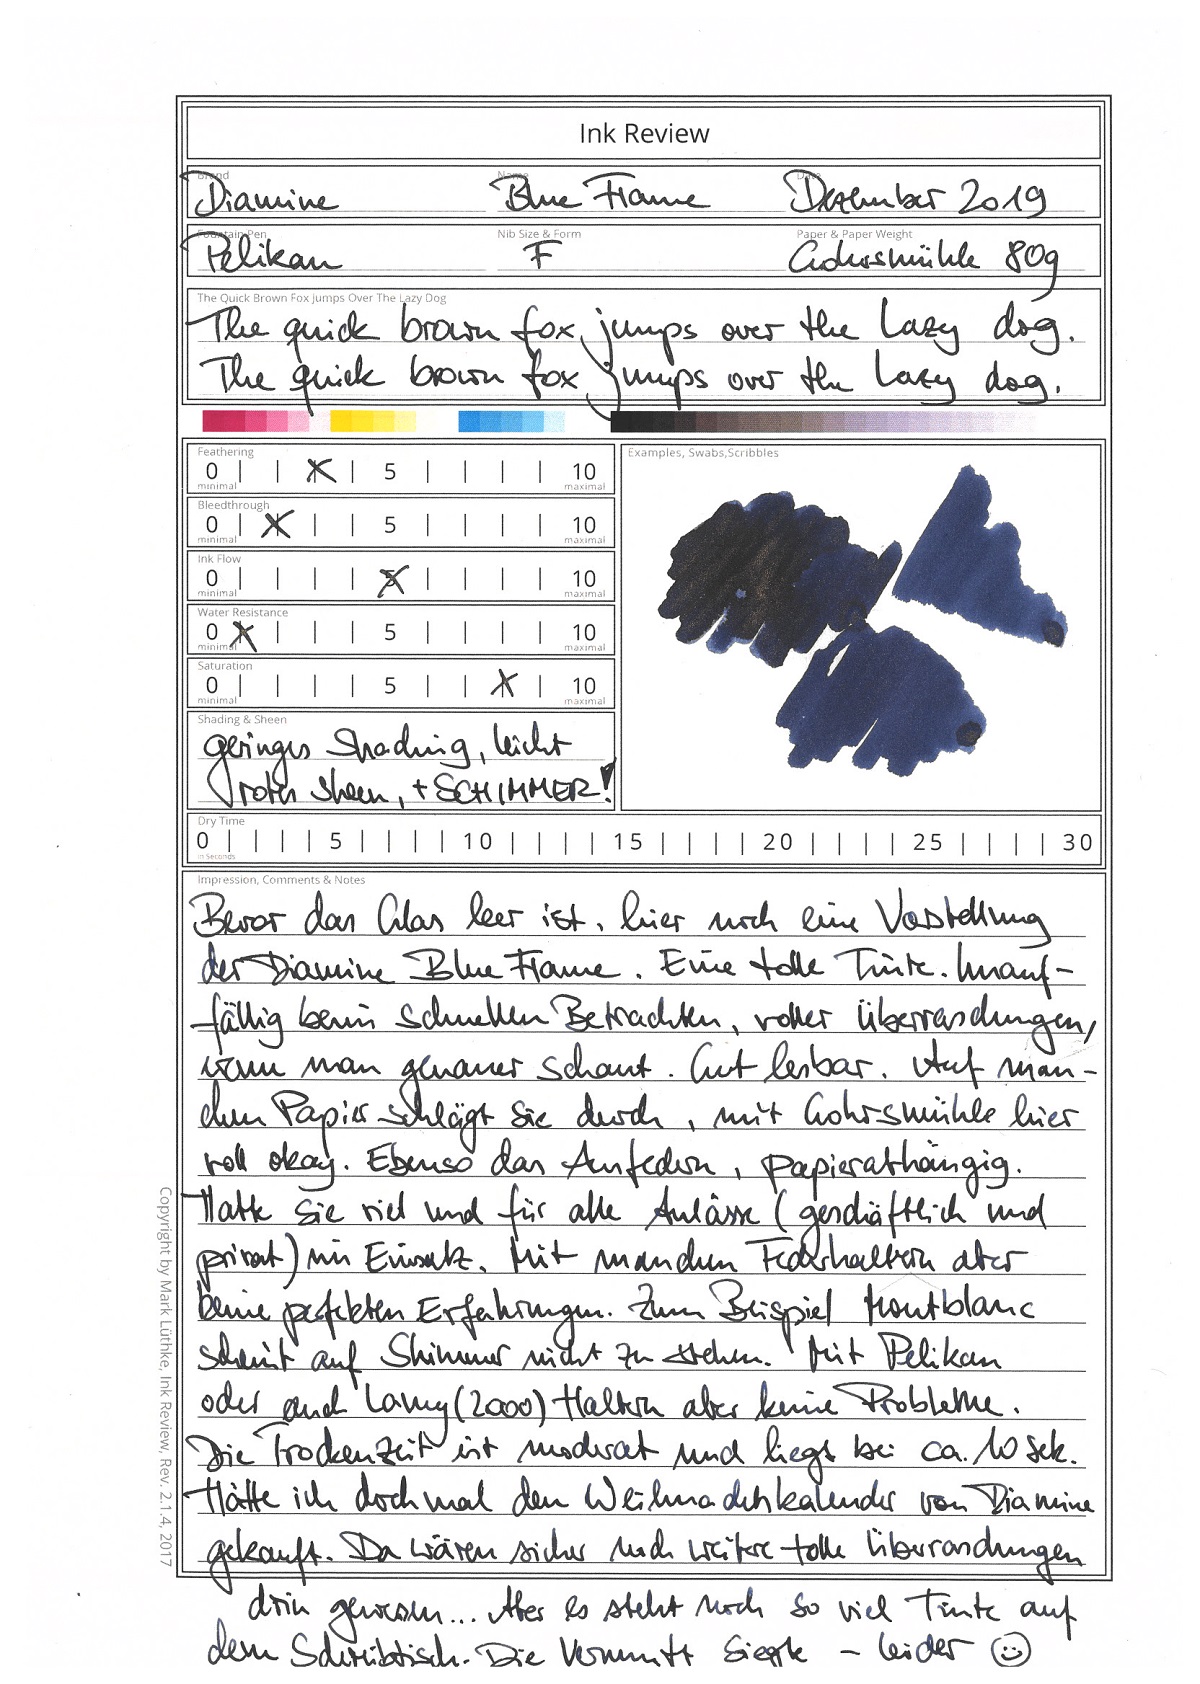 Ink Review
Brand Name Date
Diamine Blue Flame Dezember 2019
Fountain Pen Nib Size & Form Paper & Paper Weight
Pelikan F Gohrsmühle 80g
The Quick Brown Fox Jumps Over The Lazy Dog
The quick brown fox jumps over the lazy dog.
The quick brown fox jumps over the lazy dog.
Feathering
0 5 10
minimal maximal
Bleedthrough
0 5 10
minimal maximal
Ink Flow
0 5 10
minimal maximal
Water Resistance
0 5 10
minimal maximal
Saturation
0 5 10
minimal maximal
Shading & Sheen
geringes Shading, leicht
roter Sheen, + SCHIMMER!
Examples, Swabs,Scribbles
Dry Time
0 5 10 15 20 25 30
in Seconds
Impression, Comments & Notes
Bevor das Glas leer ist, hier noch eine Vorstellung
der Diamine Blue Flame. Eine tolle Tinte. Unauf-
fällig beim schnellen Betrachten, voller Überraschungen,
wenn man genauer schaut. Gut lesbar. Auf man-
chem Papier schlägt sie durch, mit Gohrsmühle hier
voll okay. Ebenso das Ausfedern, papierabhängig.
Hatte sie viel und für alle Anlässe (geschäftlich und
privat) im Einsatz. Mit manchen Federhaltern aber
keine perfekten Erfahrungen. Zum Beispiel Montblanc
scheint auf Shimmer nicht zu stehen. Mit Pelikan
oder auch Lamy (2000) Haltern aber keine Probleme.
Die Trockenzeit ist moderat und liegt bei ca. 10 Sek.
Hätte ich doch mal den Weihnachtskalender von Diamine
gekauft. Da wären sicher noch weitere tolle Überraschungen
drin gewesen... Aber es steht noch so viel Tinte auf
dem Schreibtisch. Die Vernunft siegte – leider
Copyright by Mark Lüthke, Ink Review, Rev. 2.1.4, 2017